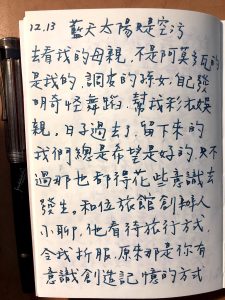 12.13 藍天太陽是空污
去看我的母親,不是阿莫多瓦的
是我的,調皮的孫女,自己發
明奇怪舞蹈,幫我彩衣娛
親,日子過去了,留下來的
我們總是希望是好的,只不
過那也都得花些意識去
發生。和位旅館創辦人
小聊,他看待旅行方式,
令我折服,原來那是你有
意識創造記憶的方式